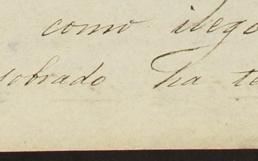 como ilego
sobrado ha te